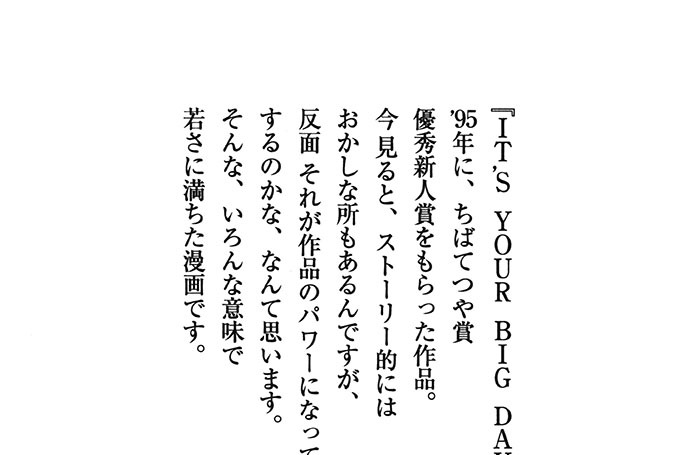 『IT'S YOUR BIG DAY
'95年に、ちばてつや賞
優秀新人賞をもらった作品。
今見ると、ストーリー的には
おかしな所もあるんですが、
反面 それが作品のパワーになって
するのかな、なんて思います。
そんな、いろんな意味で
若さに満ちた漫画です。